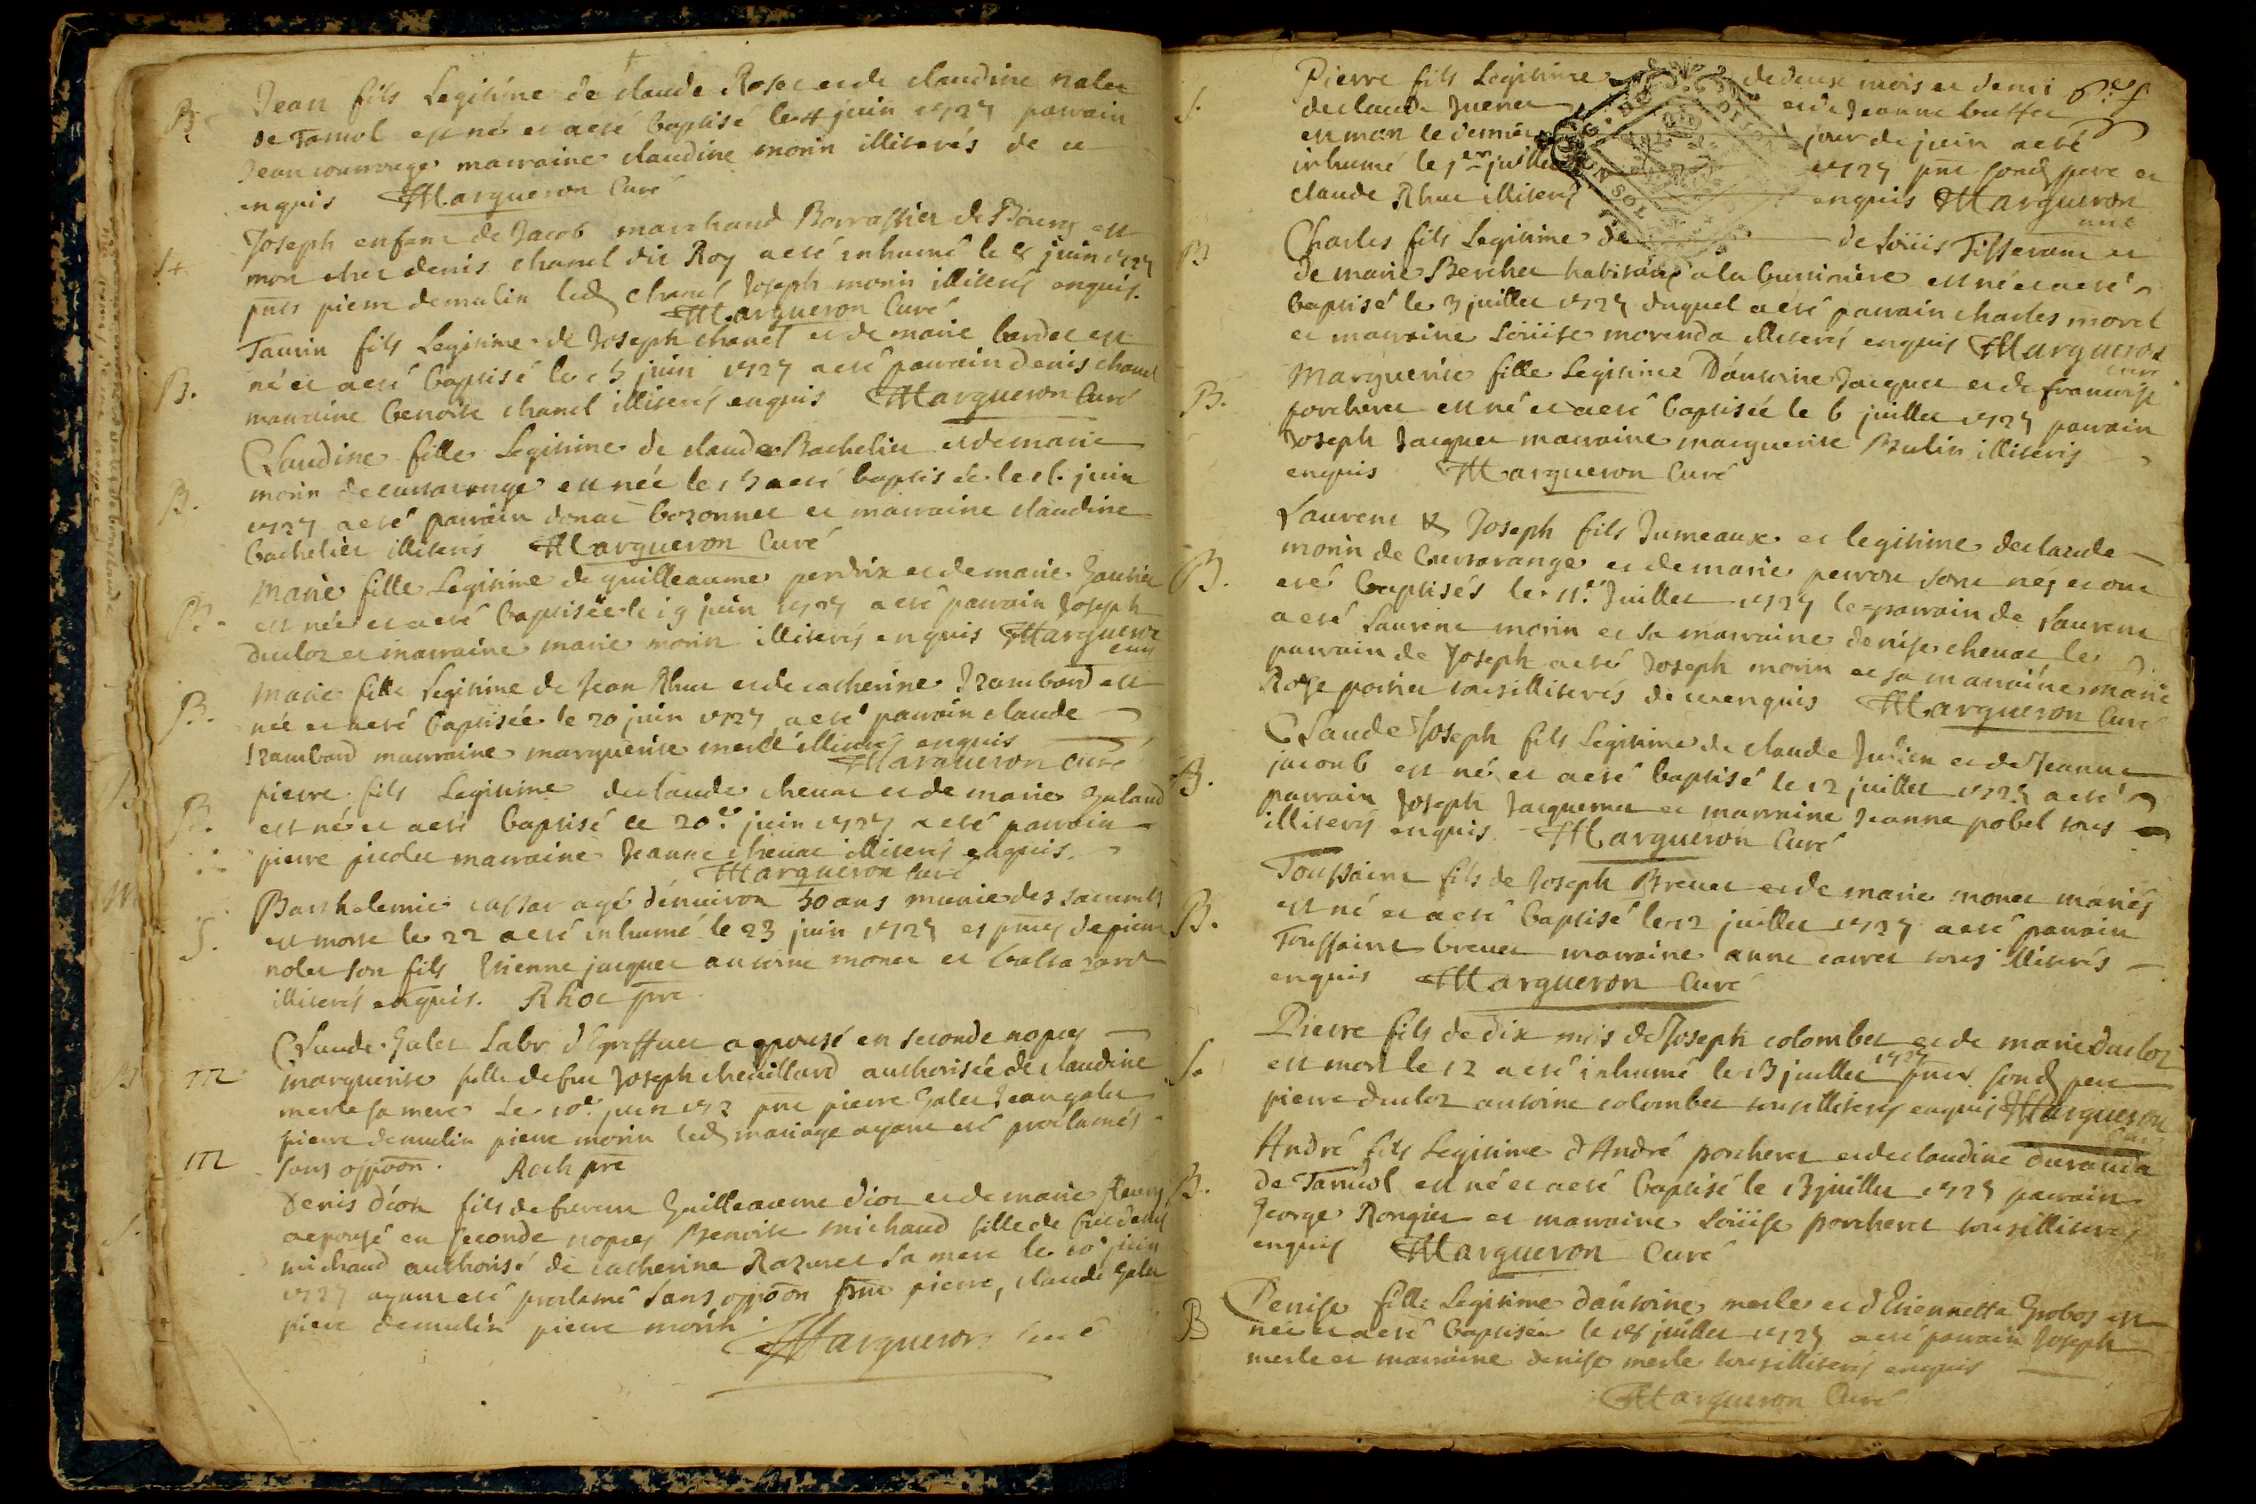 B. Jean fils Legitime de claude Roset et de claudine nalet
de Tamol est né et a eté baptisé le 4 juin 1727 parrain
Jean marraine claudine morin illiterés de ce
enquis Margueron Curé
Joseph enfant de Jacob marchand de Bourg est
S. mort chez denis chanel dit Roy a eté inhumé le juin 1727
pnts pierre demulin led chanel Joseph morin illiterés enquis.
Margueron Curé
Taurin fils Legitime de Joseph chanel et de marie bardet est
B. né et a eté baptisé le 15 juin 1727 a eté parrain denis chanel
marraine benoite chanel illiterés enquis Margueron Curé
Claudine fille Legitime de claude Bachelier et de marie
B. morin de est née le 15 a eté baptisée le 16 juin
1727 a eté parrain donat bozonnet et marraine claudine
bachelier illiterés Margueron Curé
Marie fille Legitime de guilleaume perdrix et de marie gautier
B. est née et a eté baptisée le 19 juin 1727 a eté parrain Joseph
ducloz et marraine marie morin illiterés enquis Margueron
curé
Marie fille Legitime de Jean Rhuc et de catherine Jrambord est
B. née et a eté baptisée le 20 juin 1727 a eté parrain claude
Jrambord marraine marguerite merle illiterés enquis
Margueron curé
pierre fils Legitime de claude chevat et de marie galand
B. est né et a eté baptisé le 20e juin 1727 a eté parrain
pierre picolet marraine Jeanne chevat illiterés enquis.
Margueron Curé
Barthelemie agé d'environ 50 ans munie des sacrmts
S. est morte le 22 a eté inhumé le 23 juin 1727 et pnts de pierre
nolet son fils Etienne jacquet antoine monet et
illiterés enquis. Rhoc pre
Claude Galet Labr. d'Egreffuet a epousé en seconde nopces
m marguerite fille de feu Joseph chevillard authorisée de claudine
merle sa mere le 10e juin 172 pnt pierre Galet Jean galet
pierre demulin pierre morin led mariage ayant eté proclamés
m sans oppoon. Roch pre
Denis dion fils de Guilleaume dion et de marie
a epousé en seconde nopces Benoite michaud fille de feu denis
michaud authorisé de catherine Razuret sa mere le 10e juin
1727 ayant eté proclamé sans oppoon pnt pierre, claude Galet
pierre demulin pierre morin
Margueron curé
Pierre fils Legitime de deux mois et demi
S. de claude Juenet et de Jeanne buffet
est mort le dernier jour de juin a eté
inhumé le 1er juillet 1727 pnt sond pere et
claude Rhuc illiterés enquis Margueron
curé
B Charles fils Legitime de de Loüis Tisserant et
de marie Berchet habitans a la bussiniere est né et a eté
baptisé le 3 juillet 1727 duquel a eté parrain charles morel
et marraine Loüise morenda illiterés enquis Margueron
curé
Marguerite fille Legitime D'antoine Jacquet et de françoise
B. porcheret est né et a eté baptisée le 6 juillet 1727 parrain
Joseph Jacquet marraine marguerite Bulin illiterés
enquis Margueron Curé
Laurent & Joseph fils Jumeaux et legitime de claude
morin de Courtarange et de marie perron sont nés et ont
B. eté baptisés le 11e Juillet 1727 le parrain de Laurent
a eté Laurent morin et sa marraine denise chevat le
parrain de Joseph a eté Joseph morin et sa marraine marie
Roze poirier tous illiterés de ce enquis Margueron Curé
Claude Joseph fils Legitime de claude Julien et de Jeanne
B. jacoub est né et a eté baptisé le 12 juillet 1727 a eté
parrain Joseph Jacquemet et marraine Jeanne pobel tous
illiterés enquis Margueron Curé
Toussaint fils de Joseph Brevet et de marie monet mariés
B. est né et a eté baptisé le 12 juillet 1727 a eté parrain
Toussaint brevet marraine anne carret tous illiterés
enquis Margueron Curé
Pierre fils de dix mois de Joseph colombet et de marie ducloz
S. est mort le 12 a eté inhumé le 13 juillet 1727 pnts sond pere
pierre ducloz antoine colombet tous illiterés enquis Margueron
Curé
André fils Legitime d'André porcheret et de claudine duranda
B. de Tamiol est né et a eté baptisé le 13 juillet 1727 parrain
George Rongier et marraine Loüise porcheret tous illiterés
enquis Margueron Curé
B Denise fille Legitime d'antoine merle et d'Etiennette Grobos est
née et a eté baptisée le 18 juillet 1727 a eté parrain Joseph
merle et marraine denise merle tous illiterés enquis
Margueron Curé